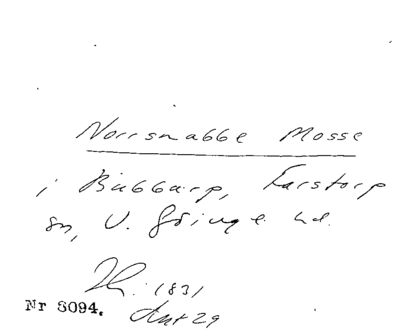 Norrsnabbe Mosse
i Bubbarp, Farstorp
sn, V. Göinge hd.
1831
Nr 8094.